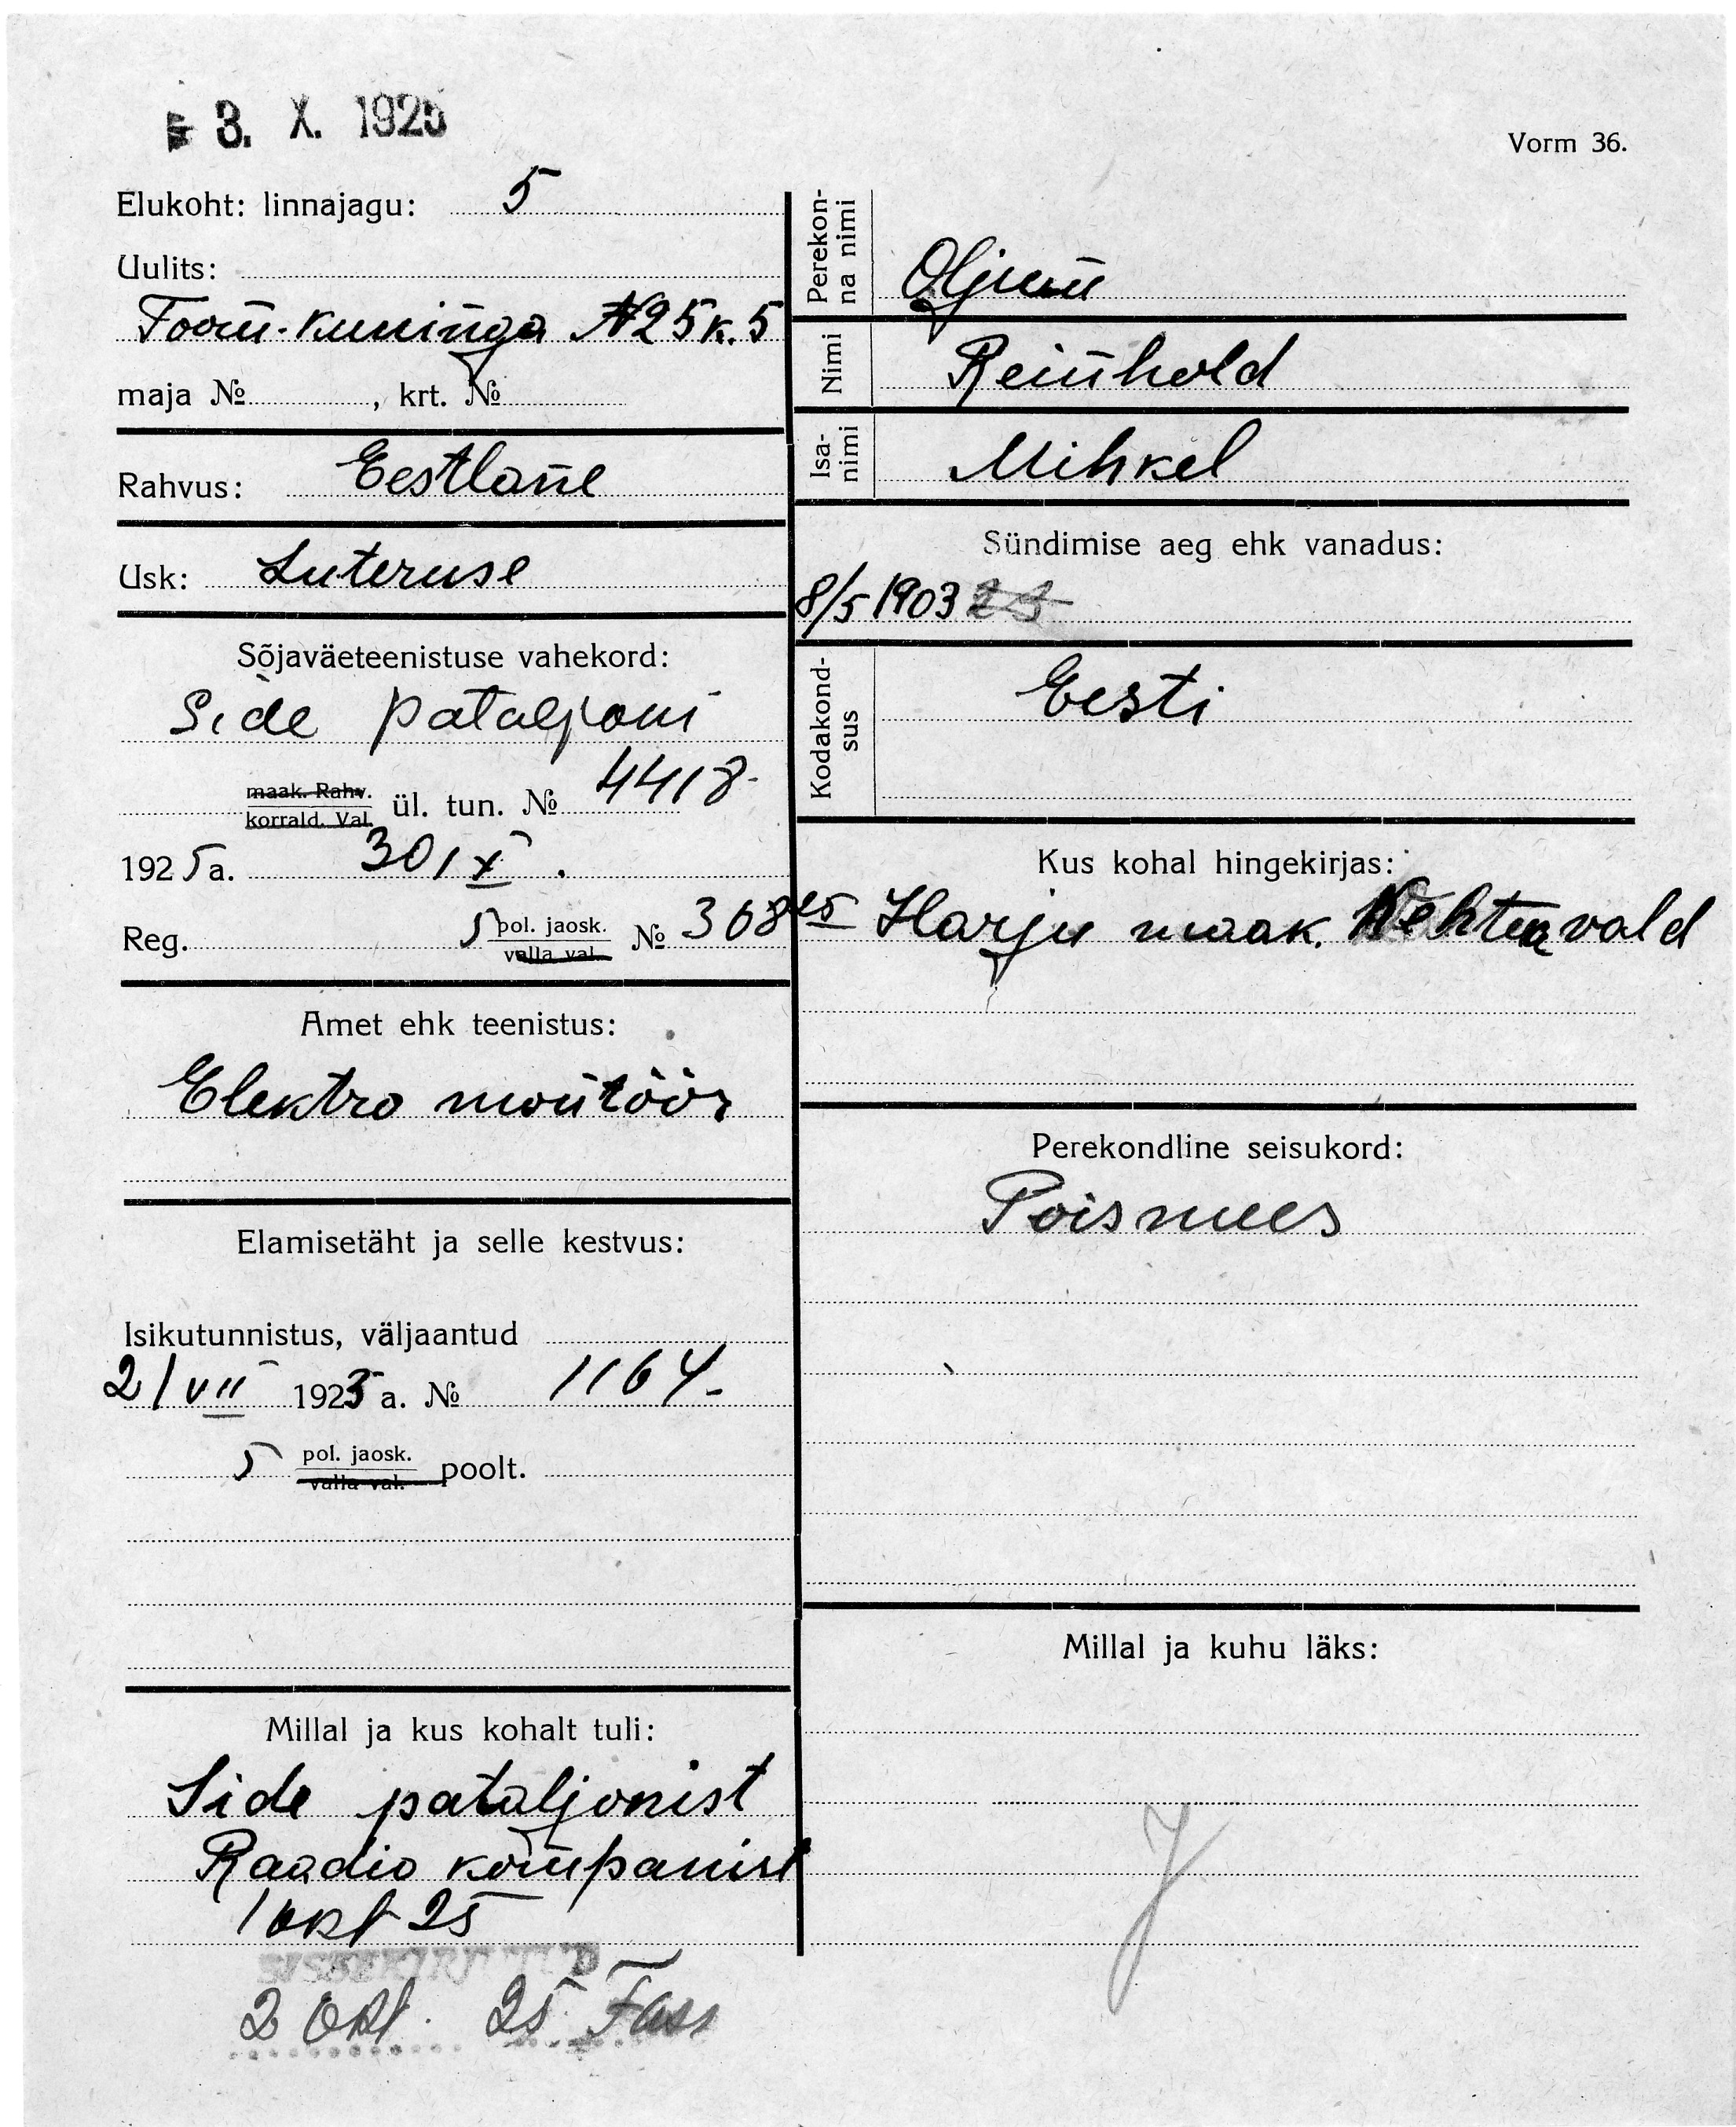 3. X. 1925
Vorm 36.
Elukoht: linnajagu: 5
Uulits:
Toom-kuninga № 25 k. 5
maja № , krt. №
Rahvus: Eestlane
Usk: Luteruse
Sõjaväeteenistuse vahekord:
Side pataljoni
maak. Rahv.
korrald. Val. ül. tun. № 4418
1925 a. 30/IX.
Reg. 5 pol. jaosk.
valla val. № 308
Amet ehk teenistus:
Elektro montöör
Elamisetäht ja selle kestvus:
Isikutunnistus, väljaantud
2/VII 1925 a. № 1164
5 pol. jaosk.
valla val. poolt.
Millal ja kus kohalt tuli:
Side pataljonist
Raadio kompanist
1 okt 25
SISSEKIRJUTUD
2 okt. 25
Perekon-
na nimi
Oljum
Nimi Reinhold
Isa-
nimi Mihkel
Sündimise aeg ehk vanadus:
8/5 1903 23
Kodakond-
sus Eesti
Kus kohal hingekirjas:
Harju maak. Kehtna vald
Perekondline seisukord:
Poismees
Millal ja kuhu läks: